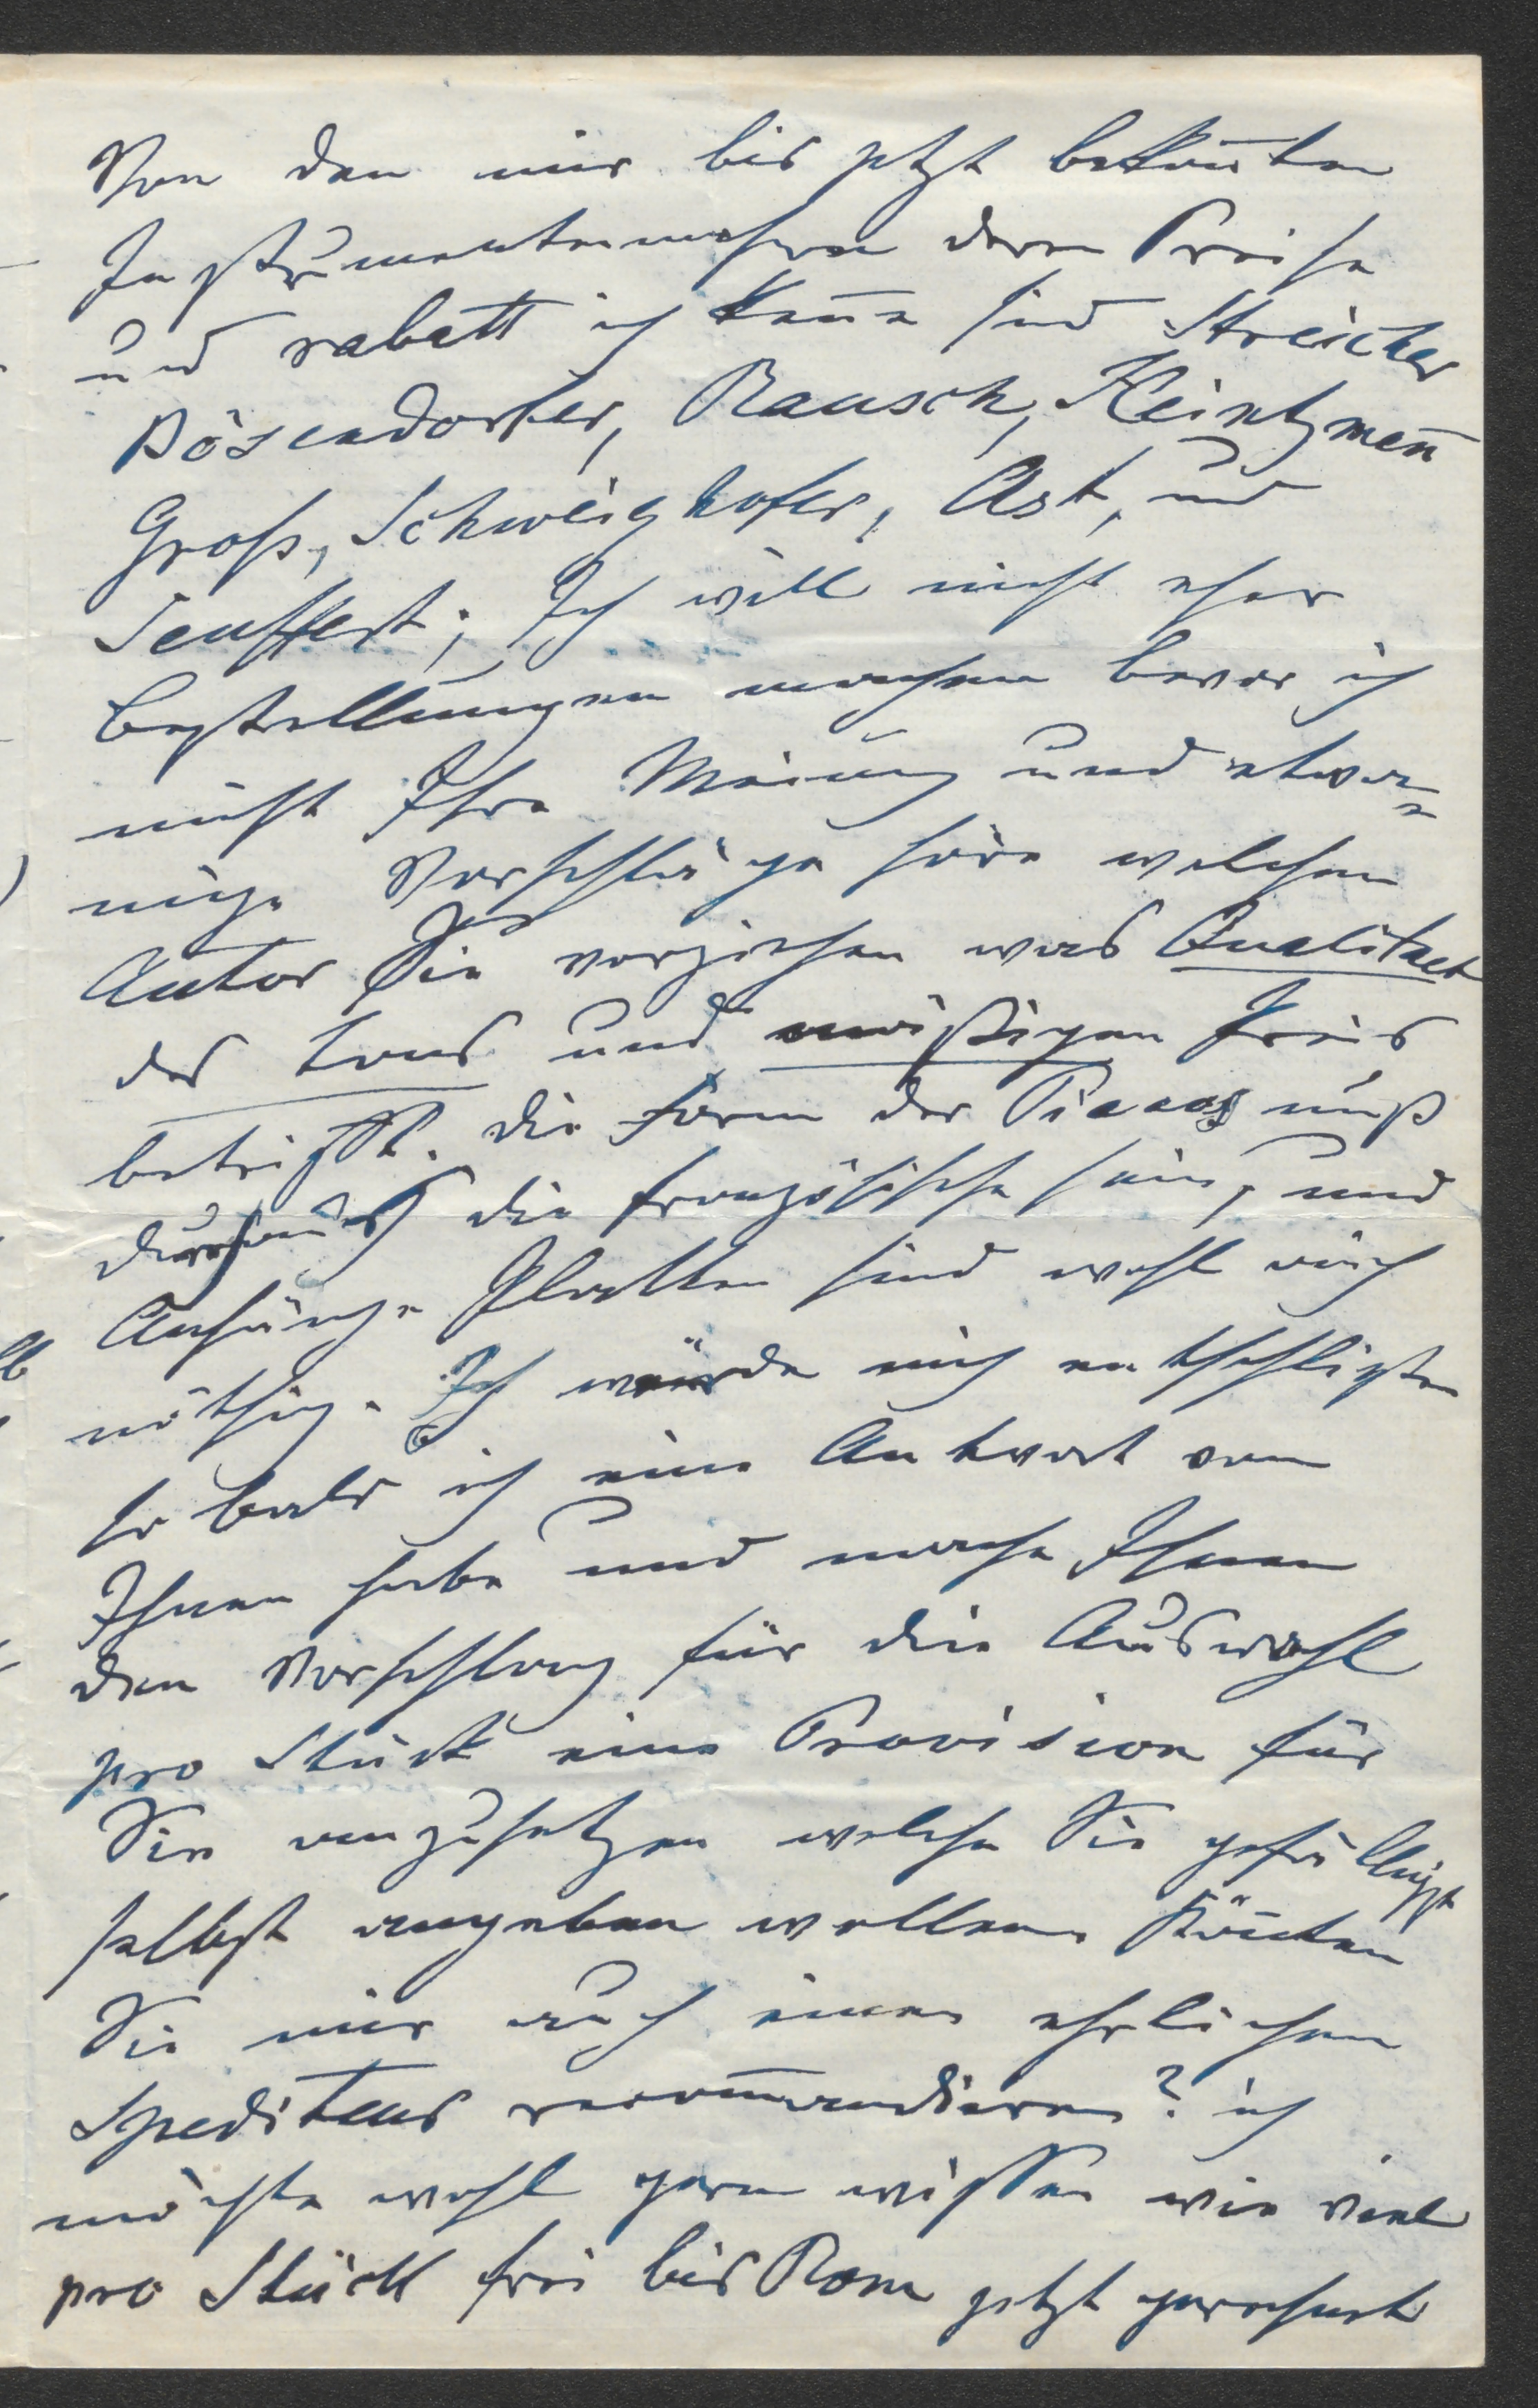 Von den mir bis jetzt bekan̄ten
Instrumentenmachern deren Preise
und rabatt ich ken̄e sind Streicher
Bösendorfer, Rausch, Heintzman̄
Groß, Schweighofer, Ast, und
Seuffert; Ich will nicht eher
Bestellungen machen bevor ich
nicht Ihre Meinung und etwa-
nige Vorschläge höre welchen
Autor Sie vorziehen was Qualitaet
des tons und mäßigen Preis
betrifft. die Form der Pianos muß
durchaus die französische sein, und
Anhänge Platten sind wohl auch
nöthig. Ich würde mich entschließen
so bald ich eine Antwort von
Ihnen habe und mache Ihnen
den Vorschlag für die Auswahl
pro Stück eine Provision für
Sie anzusetzen welche Sie gefälligst
selbst angeben wollen. Kön̄ten
Sie mir auch einen ehrlichen
Spediteur recom̄andieren? ich
möchte wohl gern wissen wie viel
pro Stück frei bis Rom jetzt gerechnet